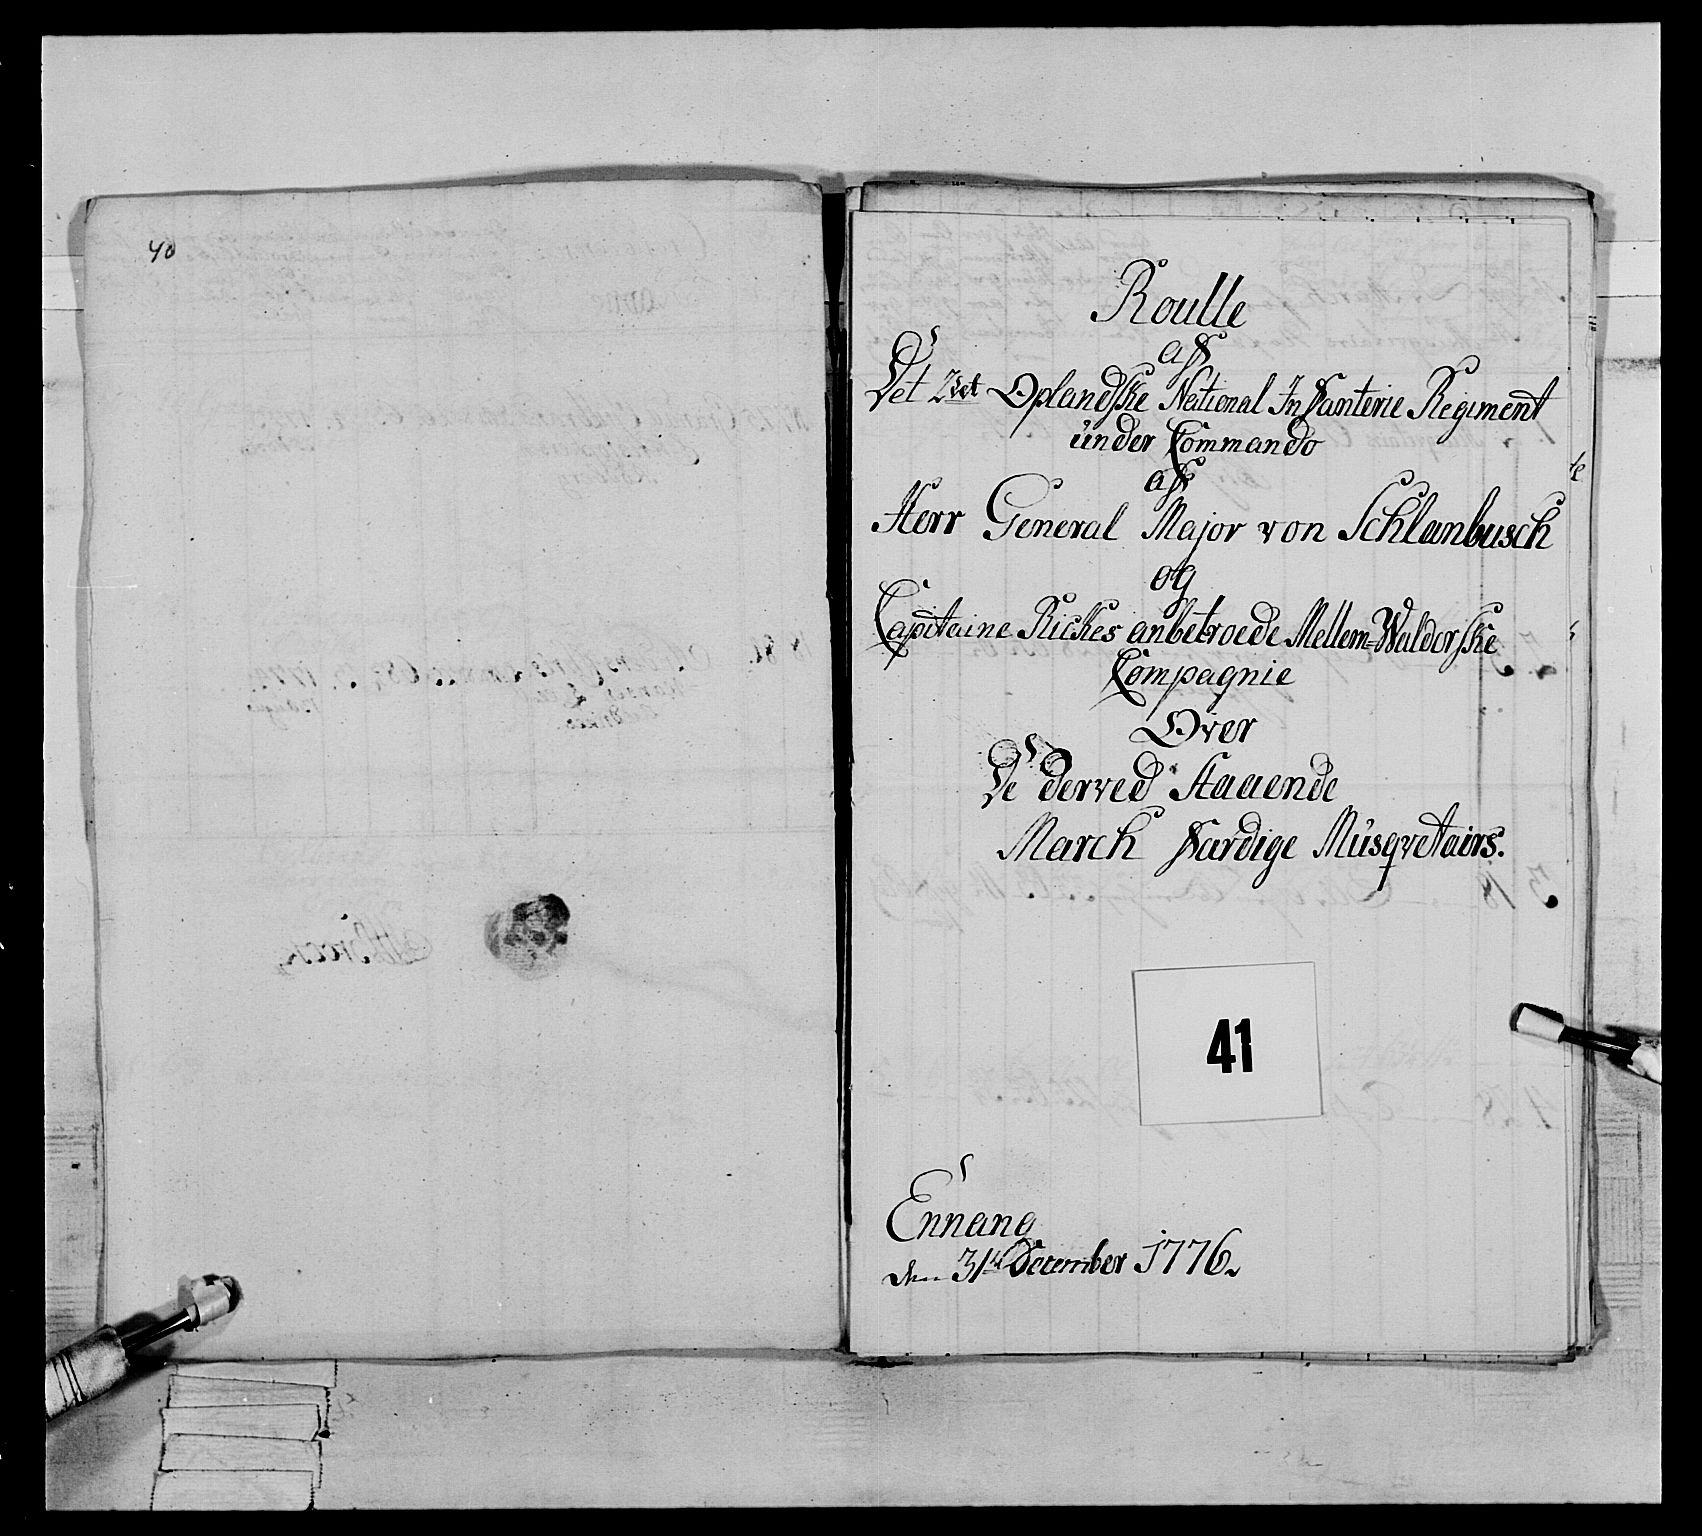 40
Roulle
aff
Det 2det Oplandske National Infanterie Regiment
under Commando
aff
Herr General Major von Schlanbusch
og
Capitaine Rickes anbetroede Mellem-Waldorske
Compagnie
Over
De derved Staaende
March färdige Müsqvetairs.
41
Ennang
den 31te December 1776.